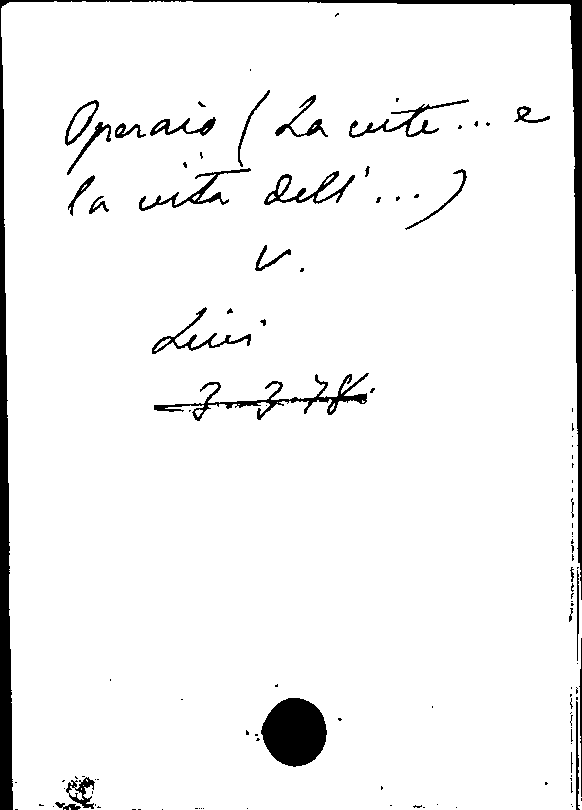 Operaio (La vite... e
la vita dell'...)
V.
3.3.78.